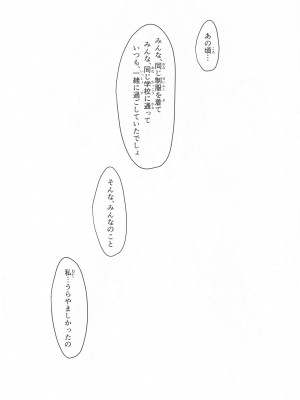 あの頃…
みんな、同じ制服を着て
みんな、同じ学校に通って
いつも、一緒に過ごしていたでしょ
そんな、みんなのこと
私…うらやましかったの